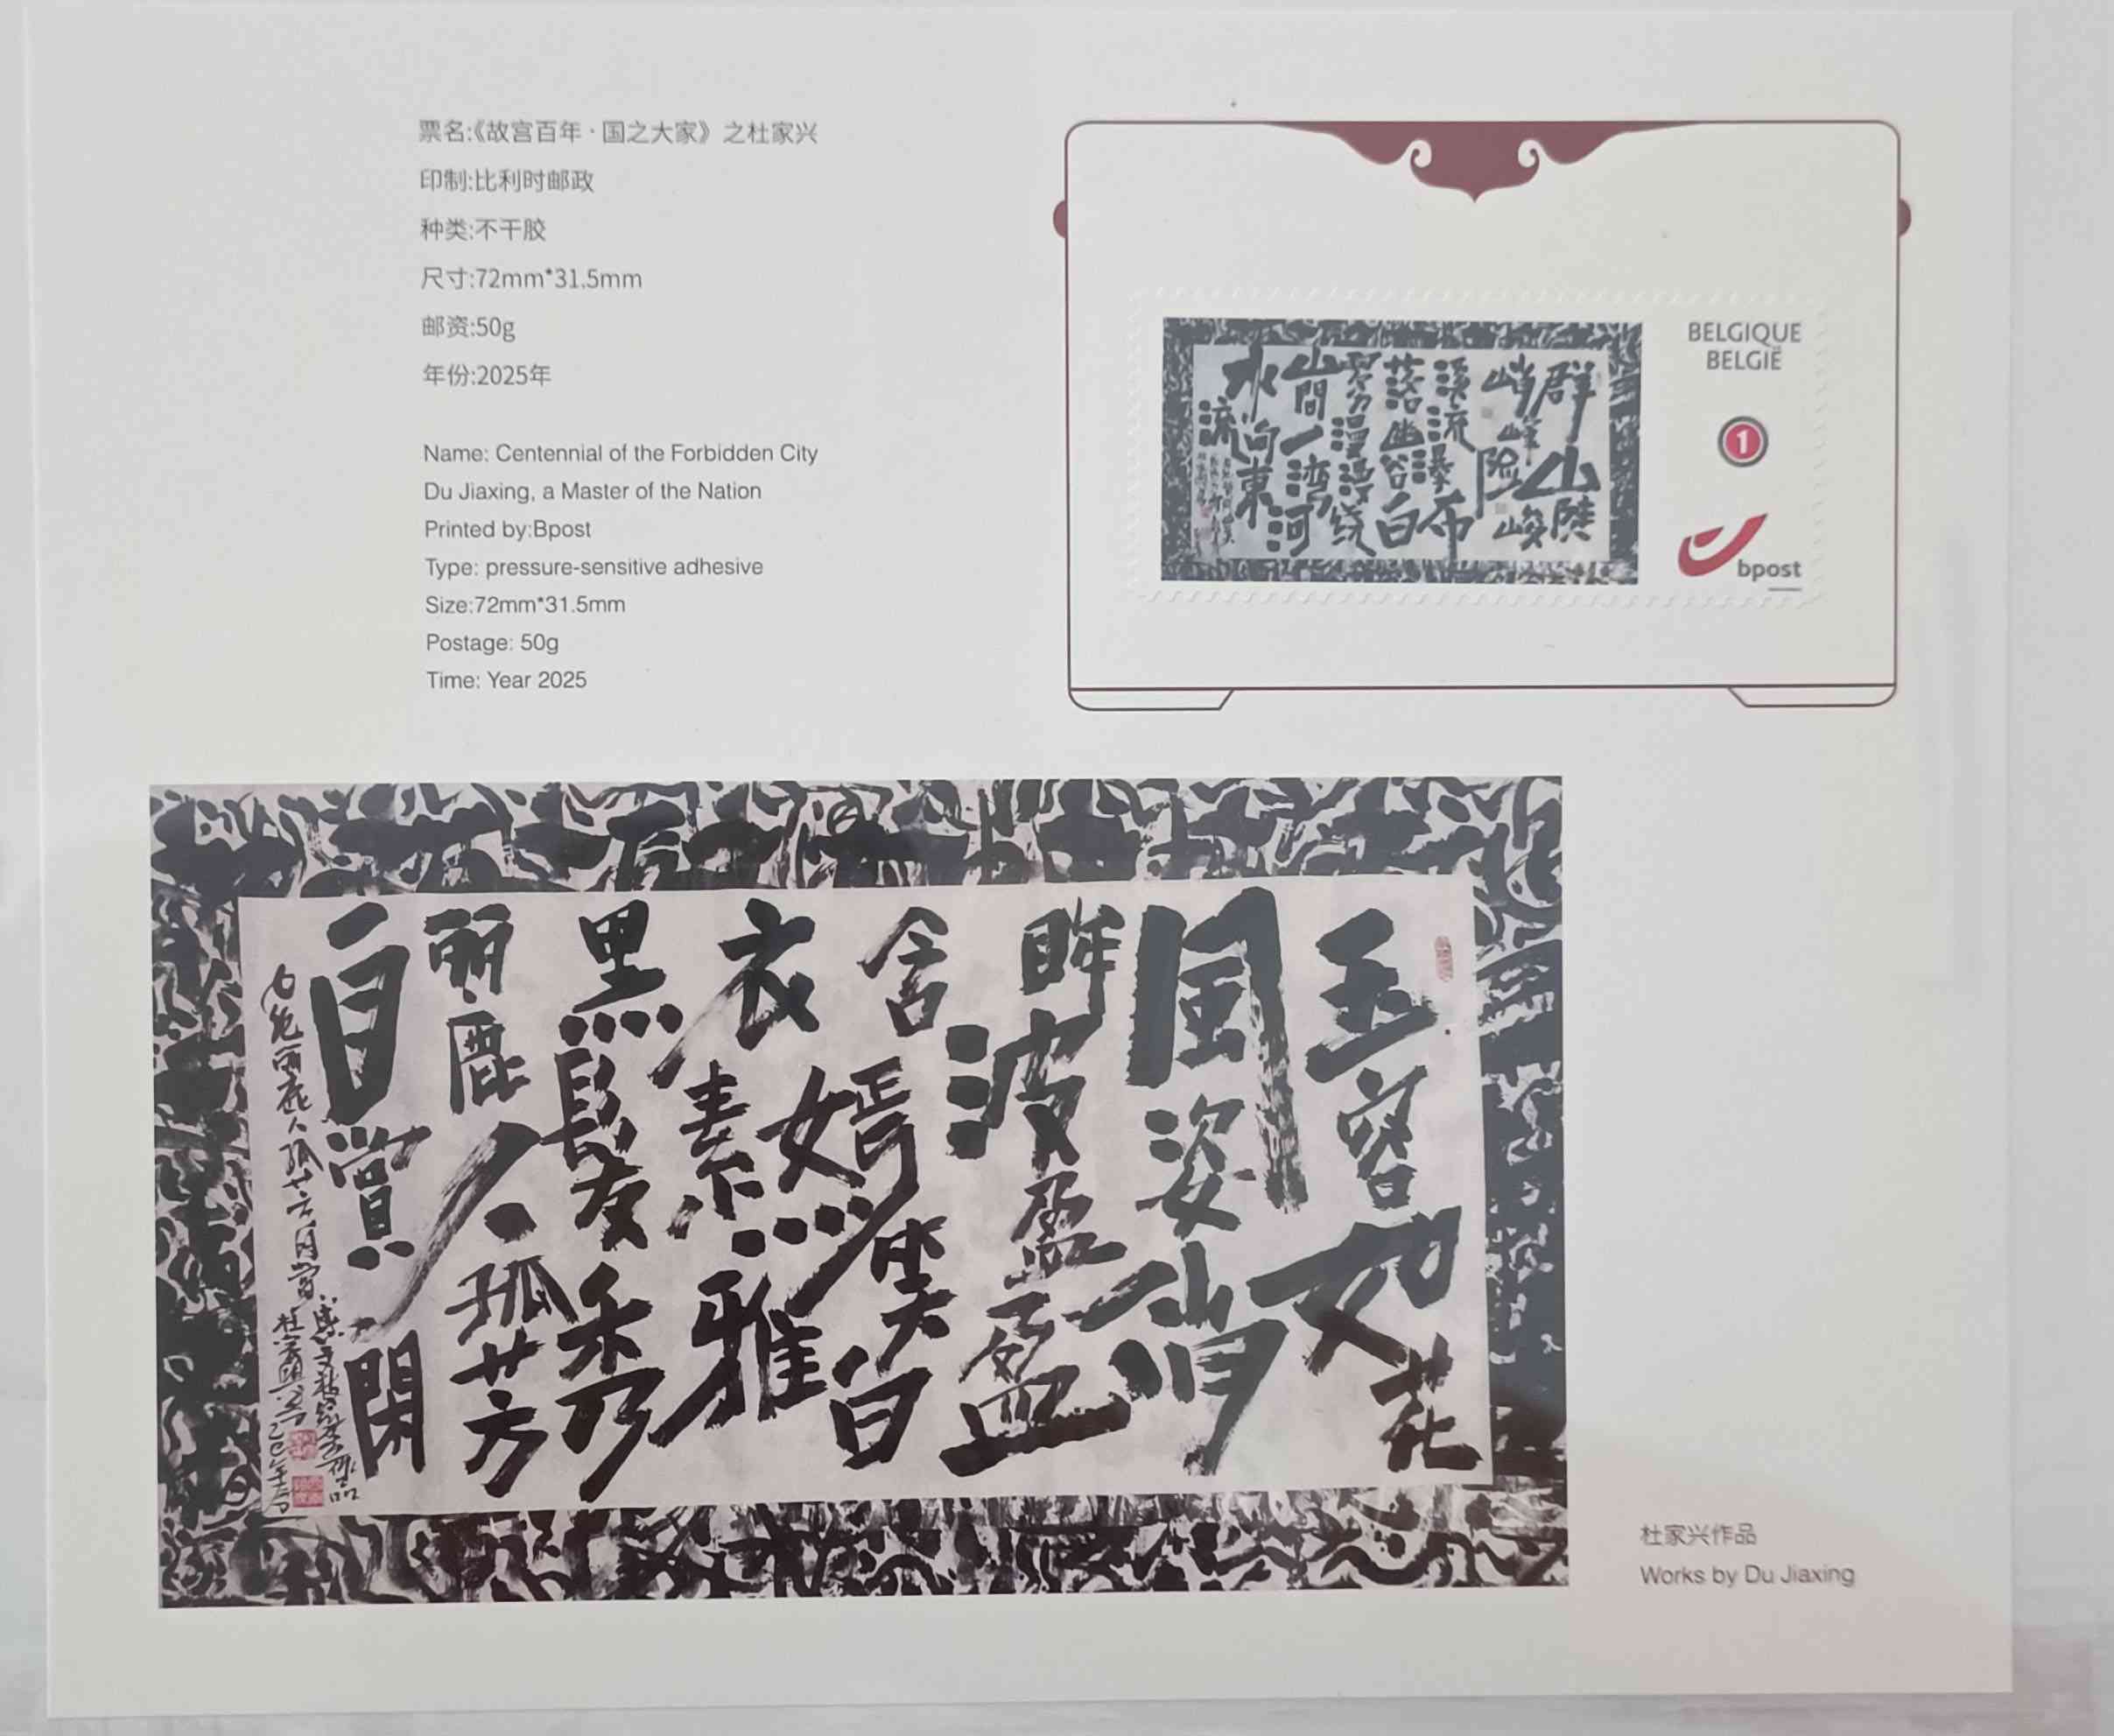 票名:《故宫百年·国之大家》之杜家兴
印制:比利时邮政
种类:不干胶
尺寸:72mm*31.5mm
邮资:50g
年份:2025年
Name: Centennial of the Forbidden City
Du Jiaxing, a Master of the Nation
Printed by:Bpost
Type: pressure-sensitive adhesive
Size:72mm*31.5mm
Postage: 50g
Time: Year 2025
群山陡
峭峰险峻
溪流瀑布
落幽谷白
雾漫漫绕
山間一湾河
水向東
流
BELGIQUE
BELGIË
1
bpost
玉容如花
風姿仙
眸波盈盈
含嫣笑白
衣素雅
黑髮秀
丽鹿人孤芳
自賞閑
杜家兴作品
Works by Du Jiaxing